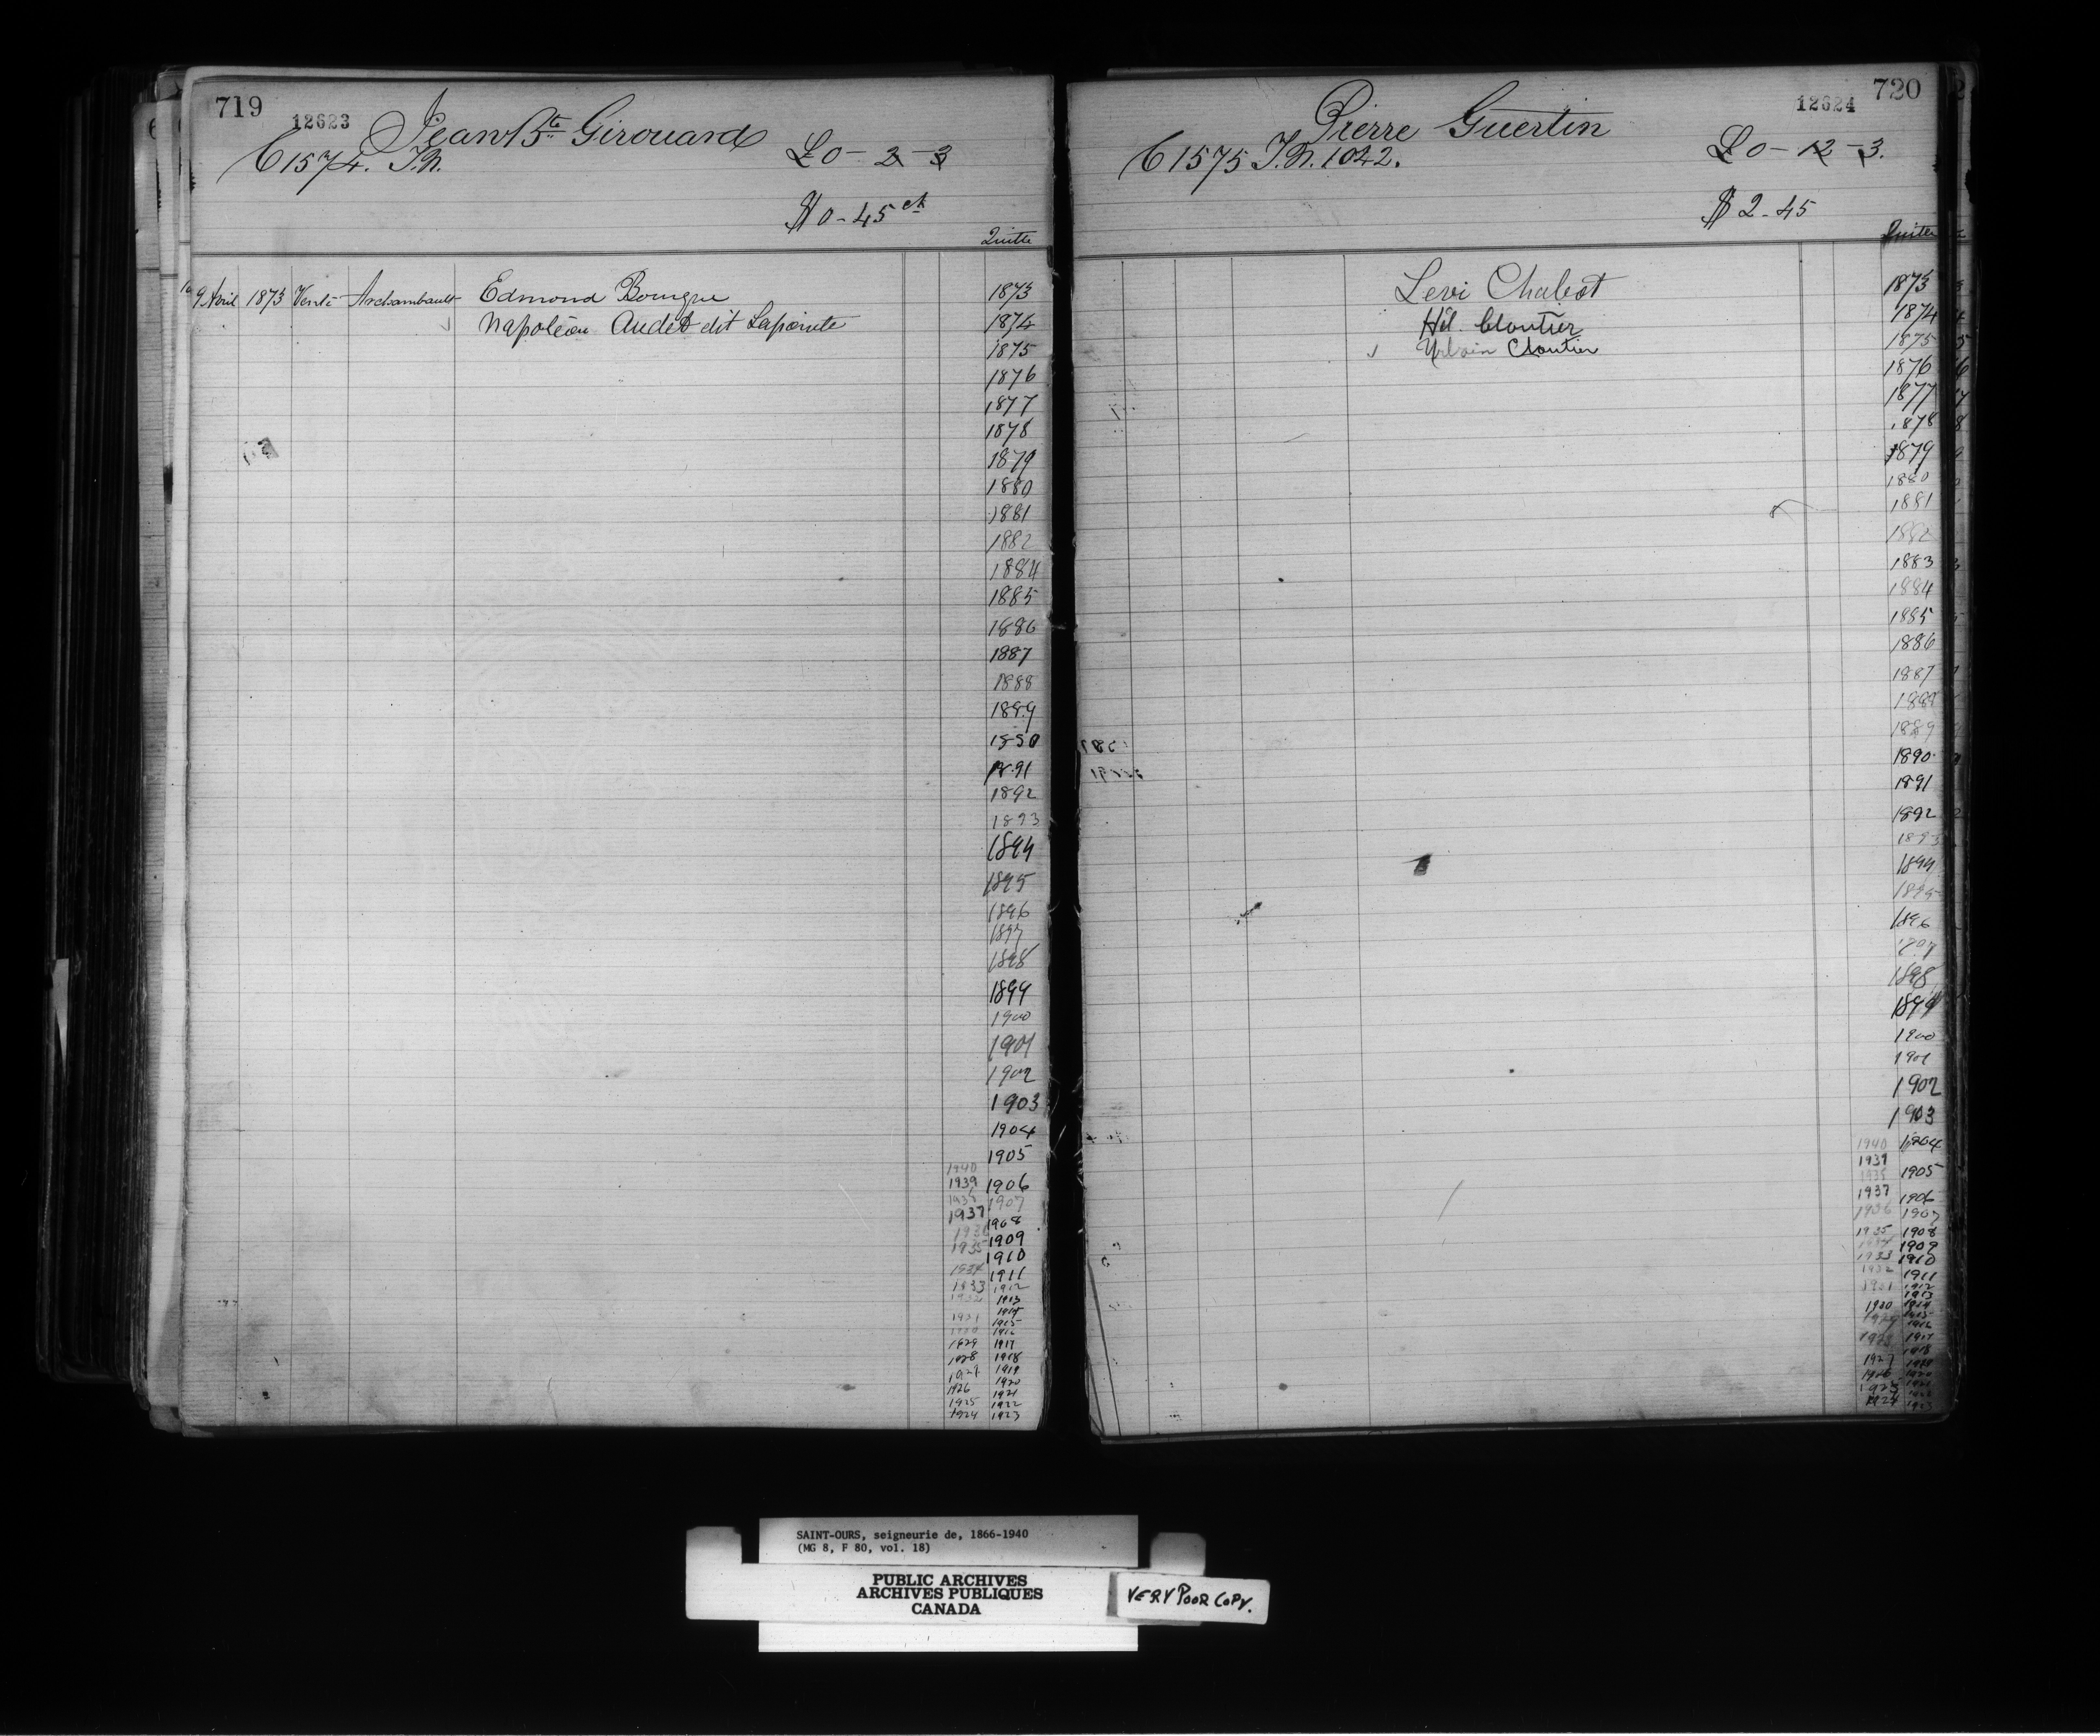 719
12623
Jean Bte Girouard
C 1574. T.N.
£0-2-3
$0-45 ct
Quitte
9 Avril 1873 Vente Archambault Edmond Bourgue 1873
Napoléon Audet dit Lapointe 1874
1875
1876
1877
1878
1879
1880
1881
1882
1884
1885
1886
1887
1888
1889
1890
1891
1892
1893
1894
1895
1896
1897
1898
1899
1900
1901
1902
1903
1904
1905
1940
1939 1906
1938 1907
1937 1908
1936 1909
1935 1910
1934 1911
1933 1912
1932 1913
1914
1931 1915
1930 1916
1929 1917
1928 1918
1927 1919
1926 1920
1921
1925 1922
1924 1923
720
12624
Pierre Guertin
C 1575 T.N. 1042.
£0-12-3.
$2-45
Quitte
Levi Chabot 1873
Hil. Cloutier 1874
Urbain Cloutier 1875
1876
1877
1878
1879
1880
1881
1882
1883
1884
1885
1886
1887
1888
1889
1890
1891
1892
1893
1894
1895
1896
1897
1898
1899
1900
1901
1902
1903
1940 1904
1939
1938 1905
1937 1906
1936 1907
1935 1908
1934 1909
1933 1910
1932 1911
1931 1912
1913
1930 1914
1929 1915
1916
1928 1917
1918
1927 1919
1926 1920
1925
1924 1923
SAINT-OURS, seigneurie de, 1866-1940
(MG 8, F 80, vol. 18)
PUBLIC ARCHIVES
ARCHIVES PUBLIQUES
CANADA
VERY POOR COPY.